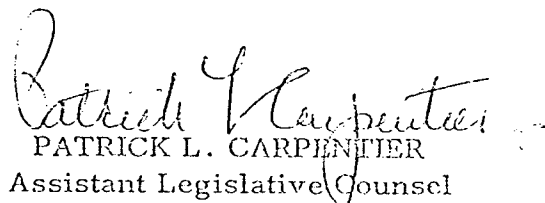 Patrick L Carpentier
PATRICK L. CARPENTIER
Assistant Legislative Counsel